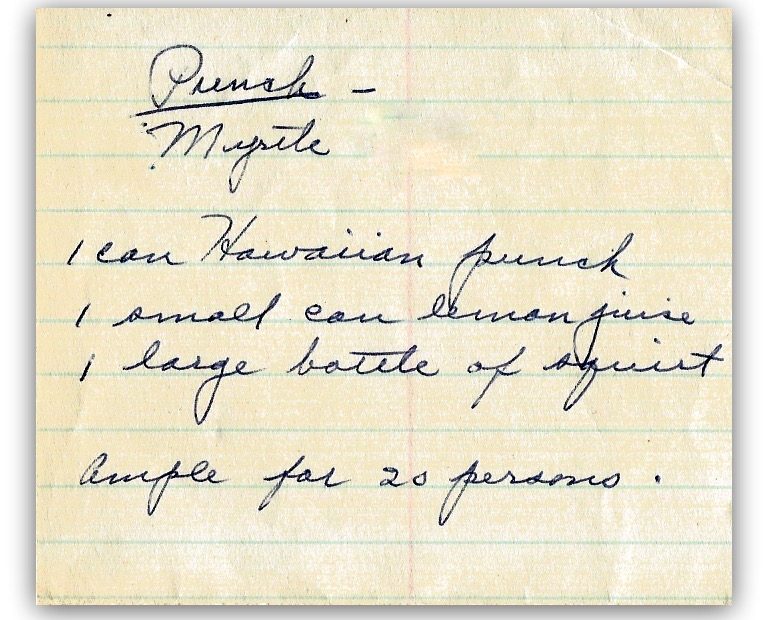 Punch -
Myrtle
1 can Hawaiian punch
1 small can lemon juise
1 large bottle of squirt
Ample for 20 persons.